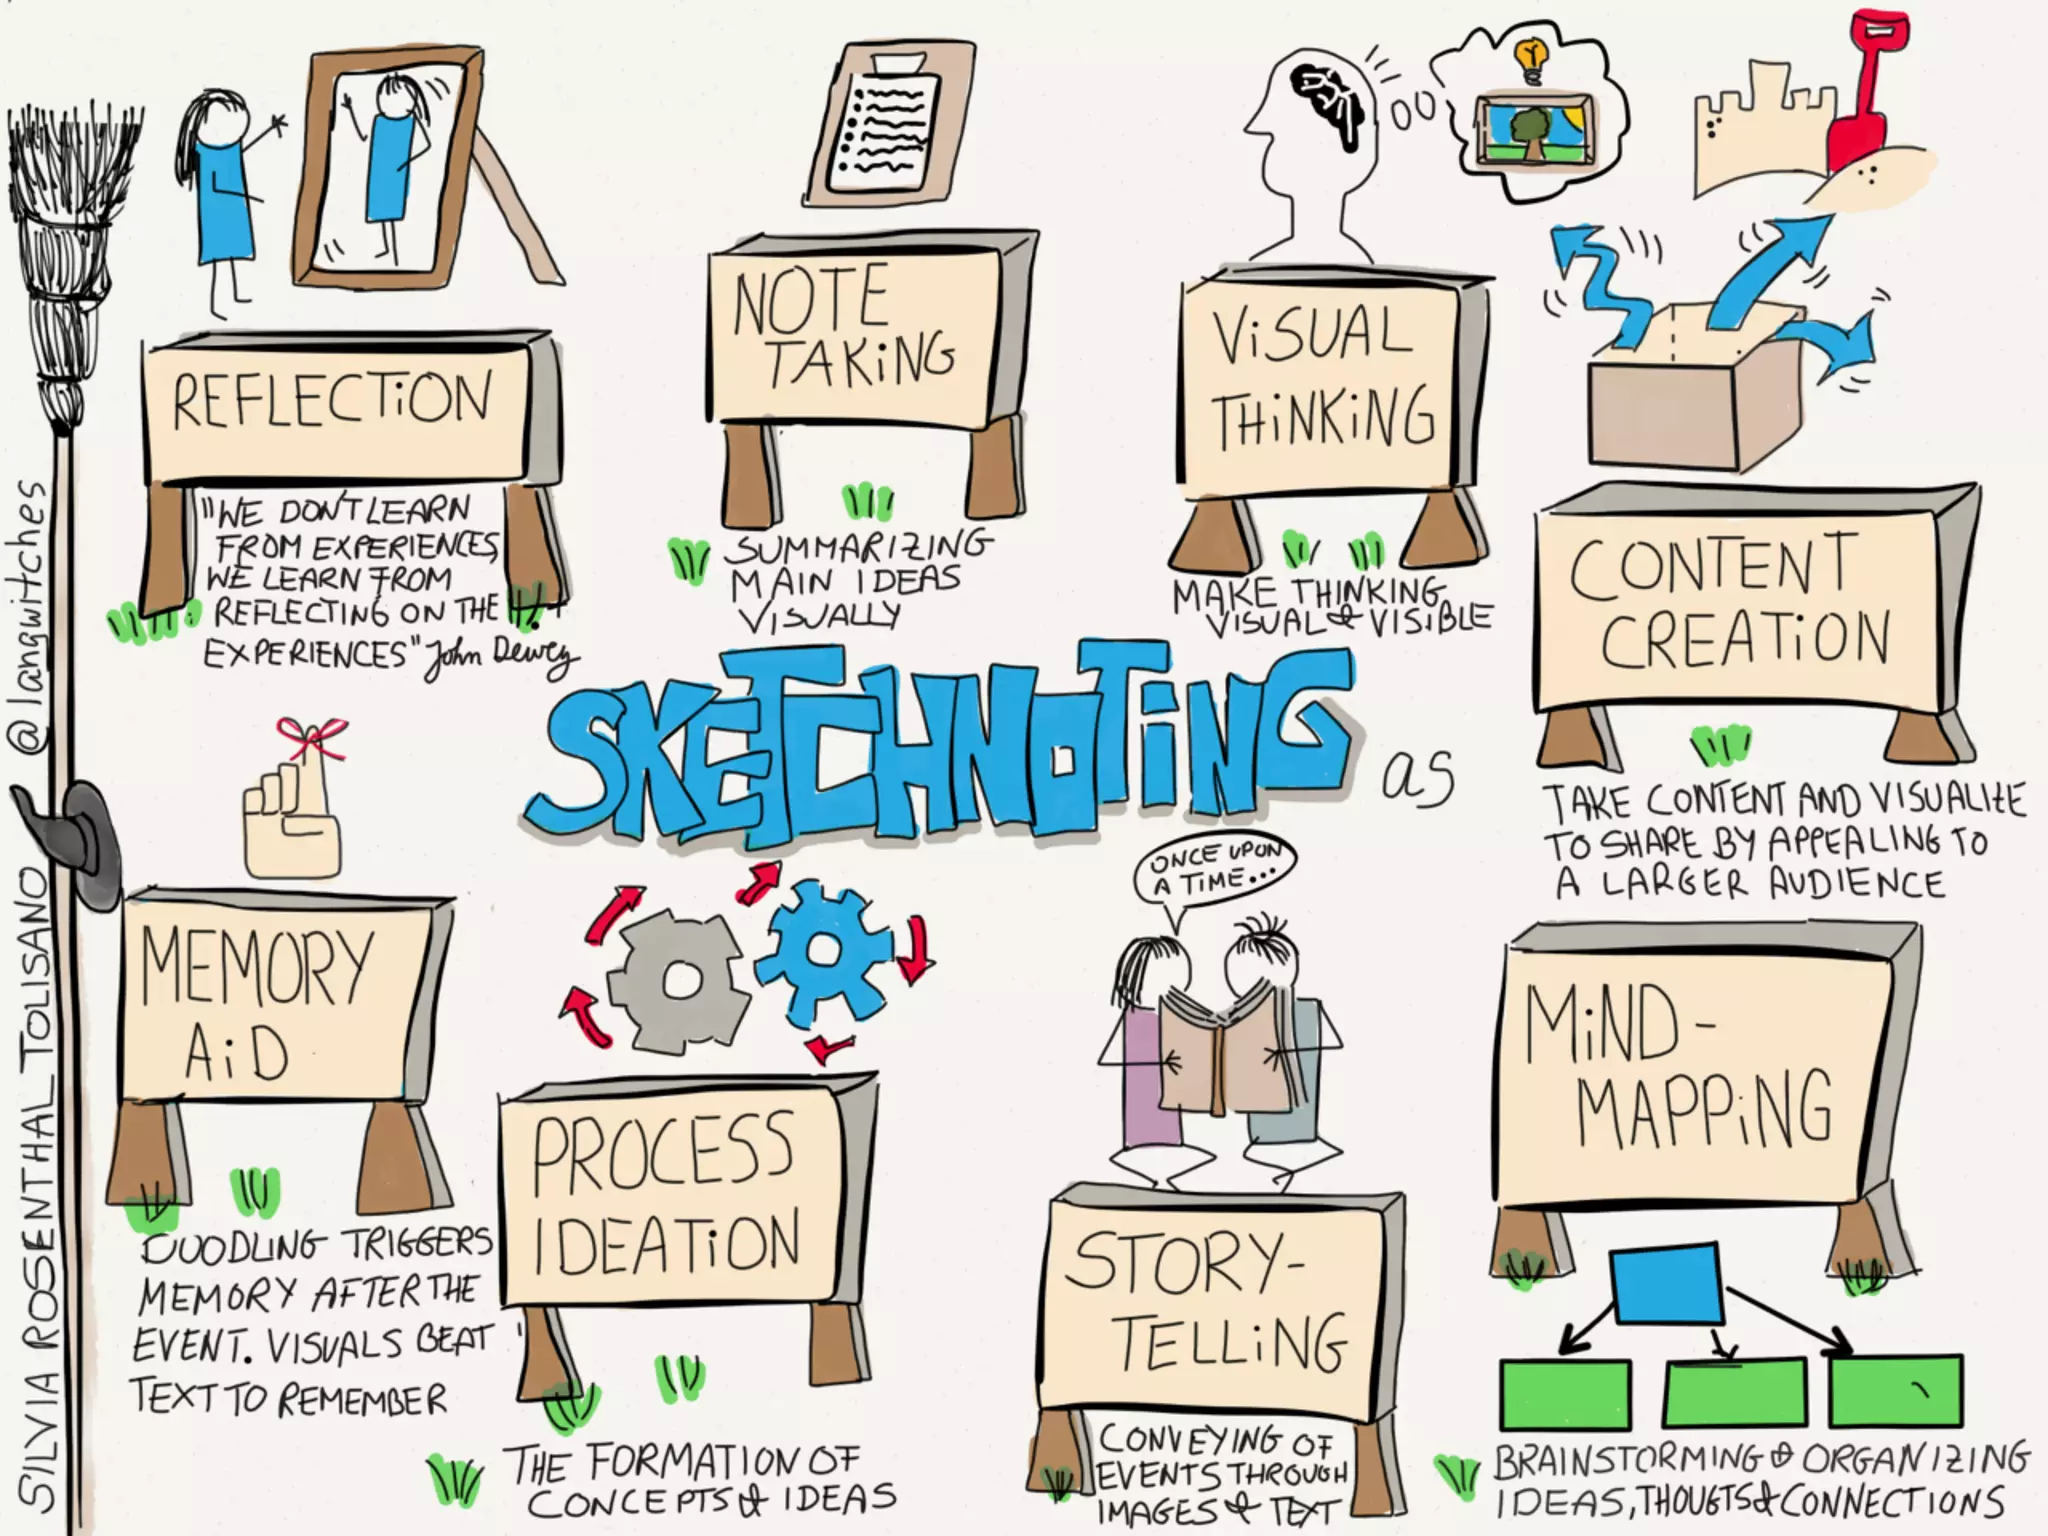 REFLECTION
"WE DON'T LEARN
FROM EXPERIENCES,
WE LEARN FROM
REFLECTING ON THE
EXPERIENCES" John Dewey
NOTE
TAKING
SUMMARIZING
MAIN IDEAS
VISUALLY
VISUAL
THINKING
MAKE THINKING
VISUAL & VISIBLE
CONTENT
CREATION
TAKE CONTENT AND VISUALIZE
TO SHARE BY APPEALING TO
A LARGER AUDIENCE
SKETCHNOTING as
MEMORY
AID
DOODLING TRIGGERS
MEMORY AFTER THE
EVENT. VISUALS BEAT
TEXT TO REMEMBER
PROCESS
IDEATION
THE FORMATION OF
CONCEPTS & IDEAS
ONCE UPON
A TIME...
STORY-
TELLING
CONVEYING OF
EVENTS THROUGH
IMAGES & TEXT
MIND-
MAPPING
BRAINSTORMING & ORGANIZING
IDEAS, THOUGTS & CONNECTIONS
SILVIA ROSENTHAL TOLISANO @langwitches